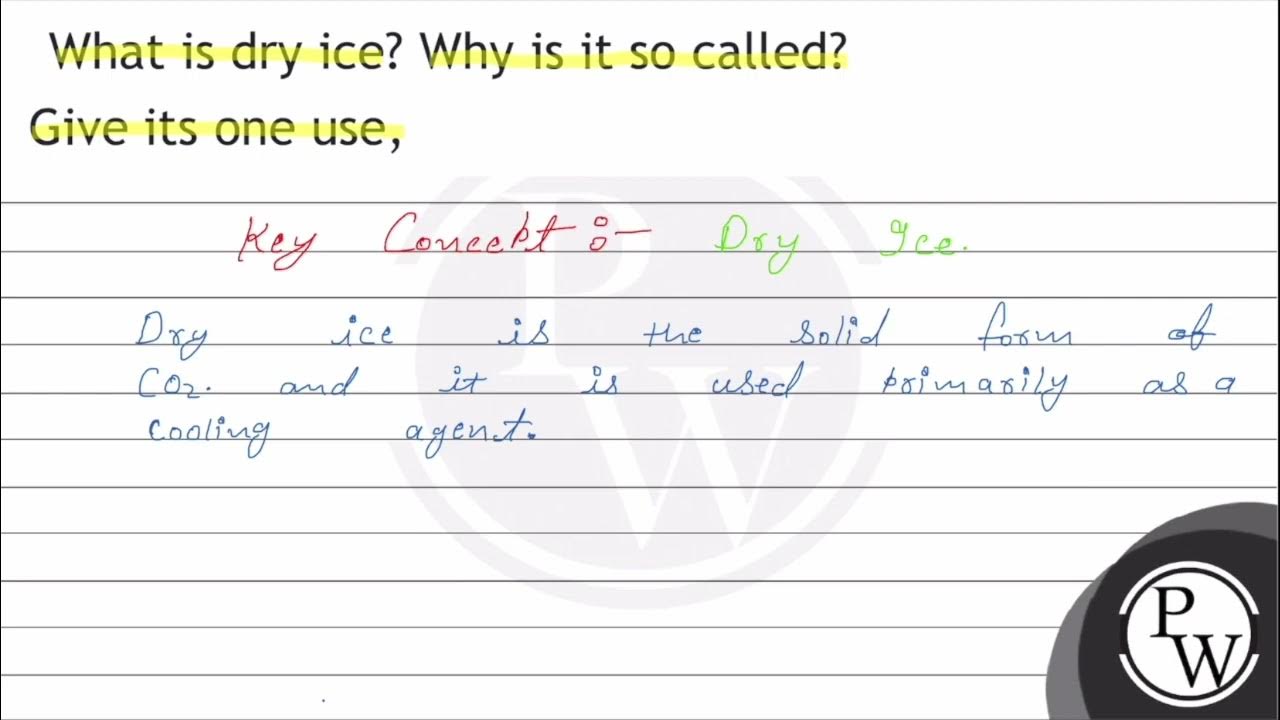 What is dry ice? Why is it so called?
Give its one use,
Key Concept :- Dry Ice.
Dry ice is the solid form of
CO₂. and it is used primarily as a
cooling agent.
PW
P
W